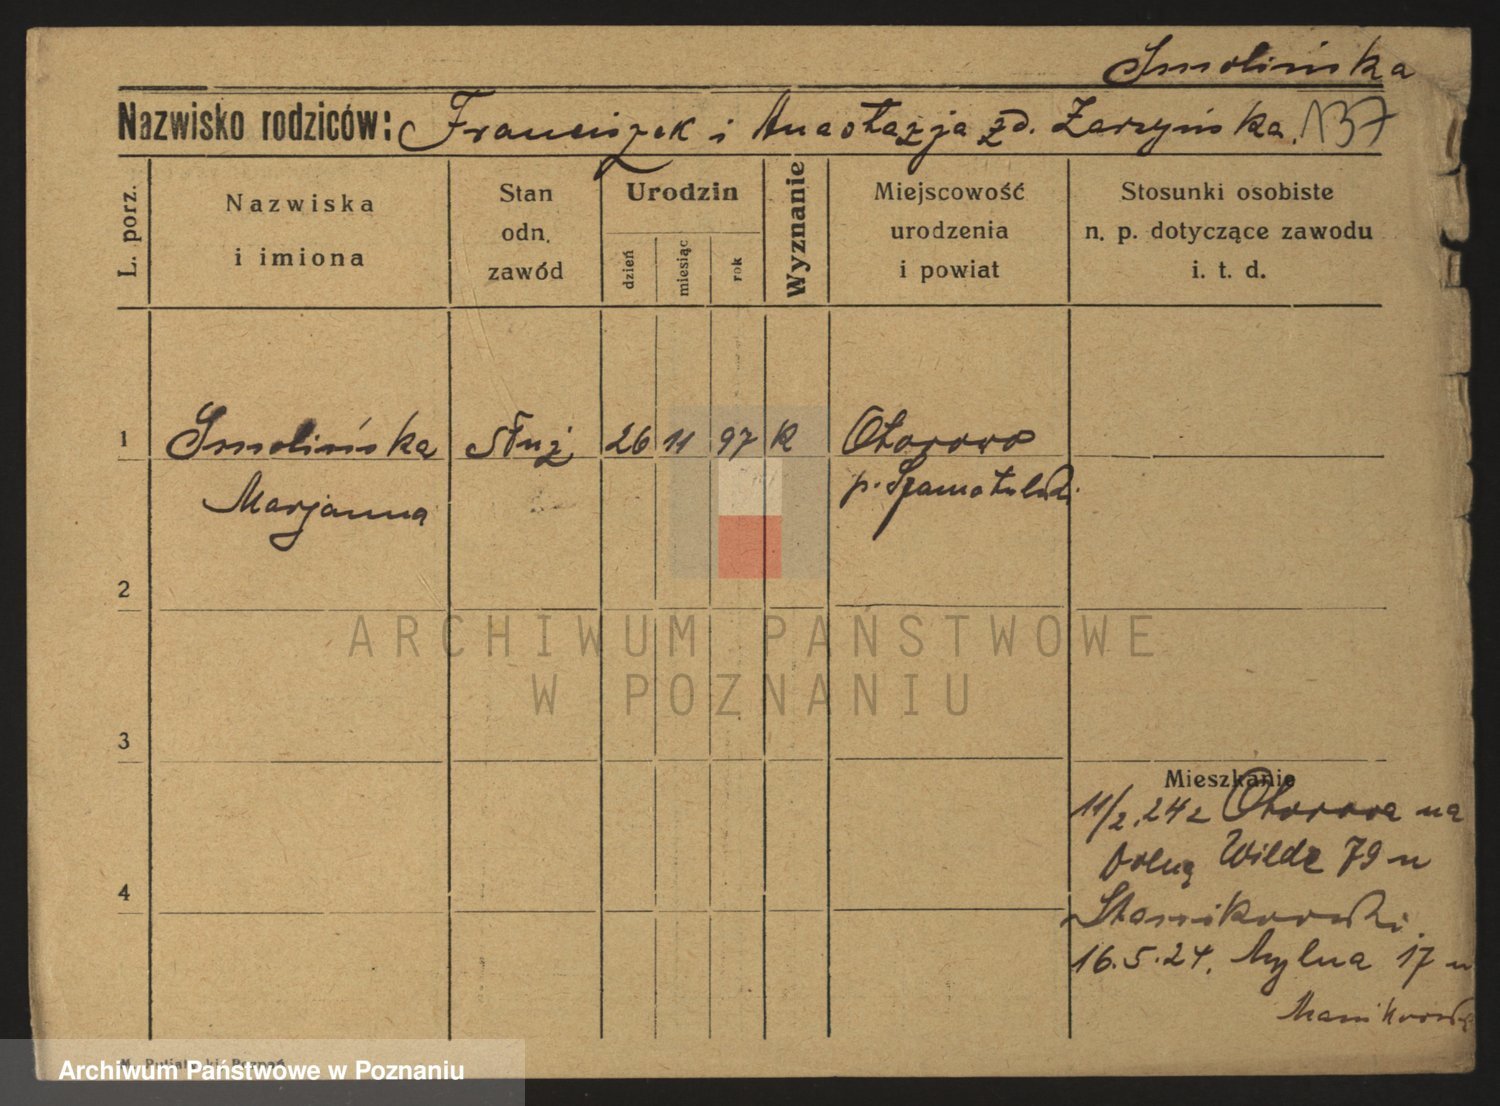 Smolińska
Nazwisko rodziców: Franciszek i Anastazja zd. Zarzyńska. 137
L. porz.
Nazwiska
i imiona
Stan
odn.
zawód
Urodzin
dzień
miesiąc
rok
Wyznanie
Miejscowość
urodzenia
i powiat
Stosunki osobiste
n. p. dotyczące zawodu
i. t. d.
1 Smolińska służ 26 11 97 k Otorowo
Marjanna p. Szamotulski
2
ARCHIWUM PAŃSTWOWE
W POZNANIU
3
Mieszkanie
11/2.24 z Otorowa na
Dolną Wildę 79 u
4
16.5.24. Mylna 17 u
Poznań
Archiwum Państwowe w Poznaniu